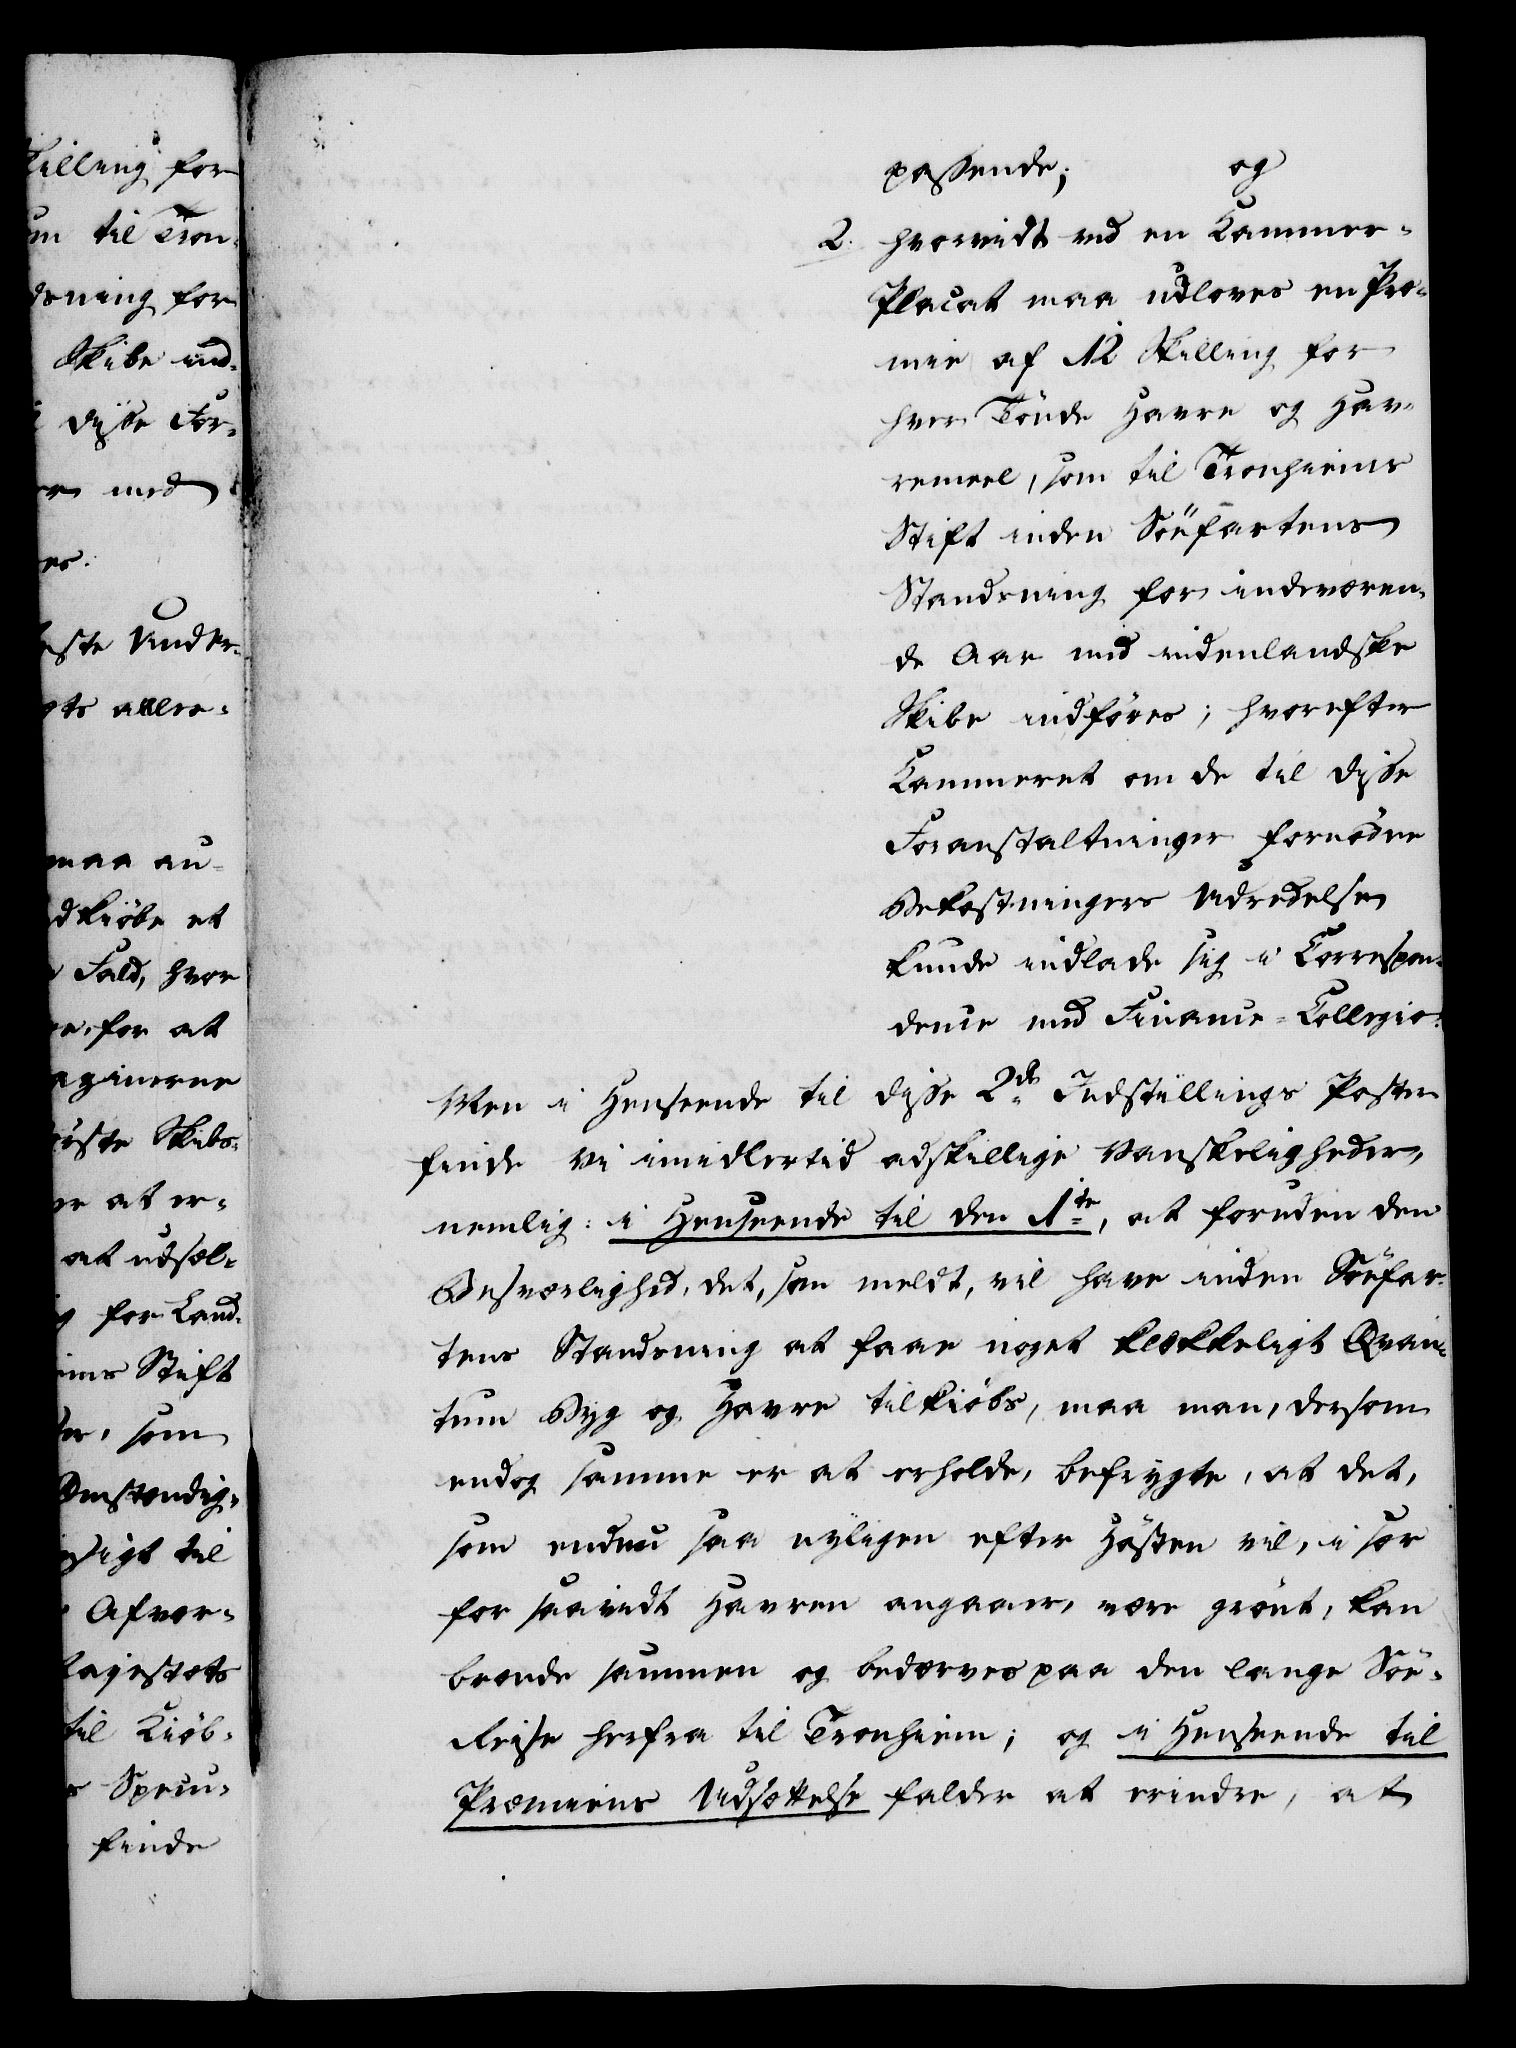 killing for
um til Tron-
dsning for
Skibe ind-
disse For-
er med
es.
este Under-
gts aller-
maa an-
dkiöbe et
Fald, hvor
e, for at
agzinerne
örste Skibs-
er at er-
at udsæl-
g for Land-
ims Stift
er, som
Omstændig-
sigt til
Afvær-
Majestæts
til Kiöb-
Specu-
finde
passende; og
2. hvorvidt ved en Kammer-
Placat maa udloves en Præ-
mie af 12 Skilling for
hver Tönde Havre og Hav-
remeel, som til Tronhiems
Stift inden Söefartens
Standsning for indeværen-
de Aar med indenlandske
Skibe indföres; hvorefter
Kammeret om de til disse
Foranstaltninger fornödne
Bekostningers Udredelse
kunde indlade sig i Correspon-
dence med Finance-Collegio.
Men i Henseende til disse 2de Indstillings Poster
finde vi imidlertid adskillige Vanskeligheder,
nemlig: i Henseende til den 1te, at foruden den
Besværlighed, det, som meldt, vil have inden Söefar-
tens Standsning at faae noget klækkeligt Qvan-
tum Byg og Havre tilkiöbs, maa man, dersom
endog samme er at erholde, befrygte, at det,
som endnu saa nyligen efter Hösten vil, i sær
for saavidt Havren angaaer, være grönt, kan
brænde sammen og bedærves paa den lange Söe-
Reise herfra til Tronhiem; og i Henseende til
Præmiens Udsættelse falder at erindre, at